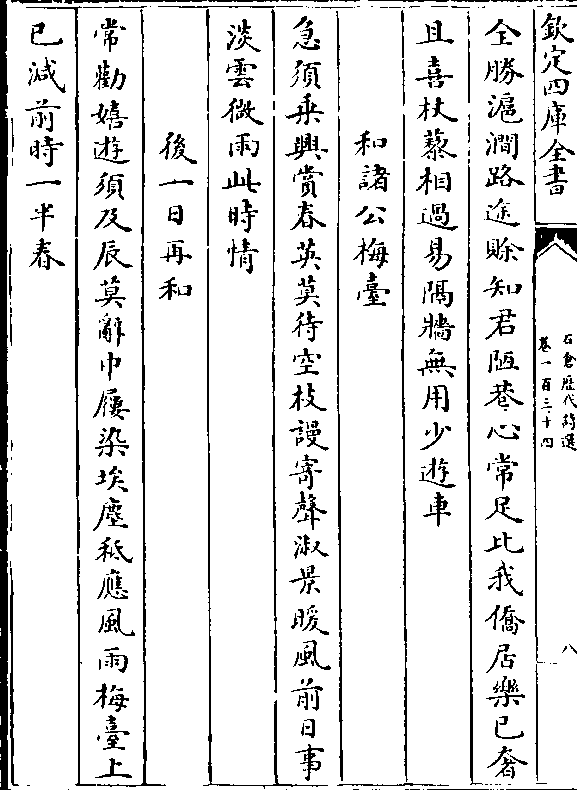 欽定四庫全書
石倉歷代詩選
卷一百三十四
八
全勝滬澗路途賒知君陋巷心常足比我僑居樂已奢
且喜杖藜相過易隔牆無用少遊車
和諸公梅臺
急須乗興賞春英莫待空枝謾寄聲淑景暖風前日事
淡雲微雨此時情
後一日再和
常勸嬉遊須及辰莫辭巾屨染埃塵秪應風雨梅臺上
已減前時一半春